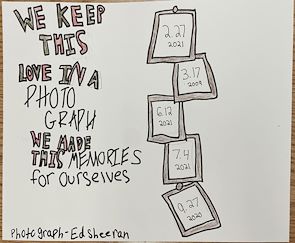 WE KEEP
THIS
LOVE IN A
PHOTO
GRAPH
WE MADE
THIS MEMORIES
for ourselves
Photograph-Ed Sheeran
2.27
2021
3.17
2009
6.12
2021
7.4
2021
9.27
2020